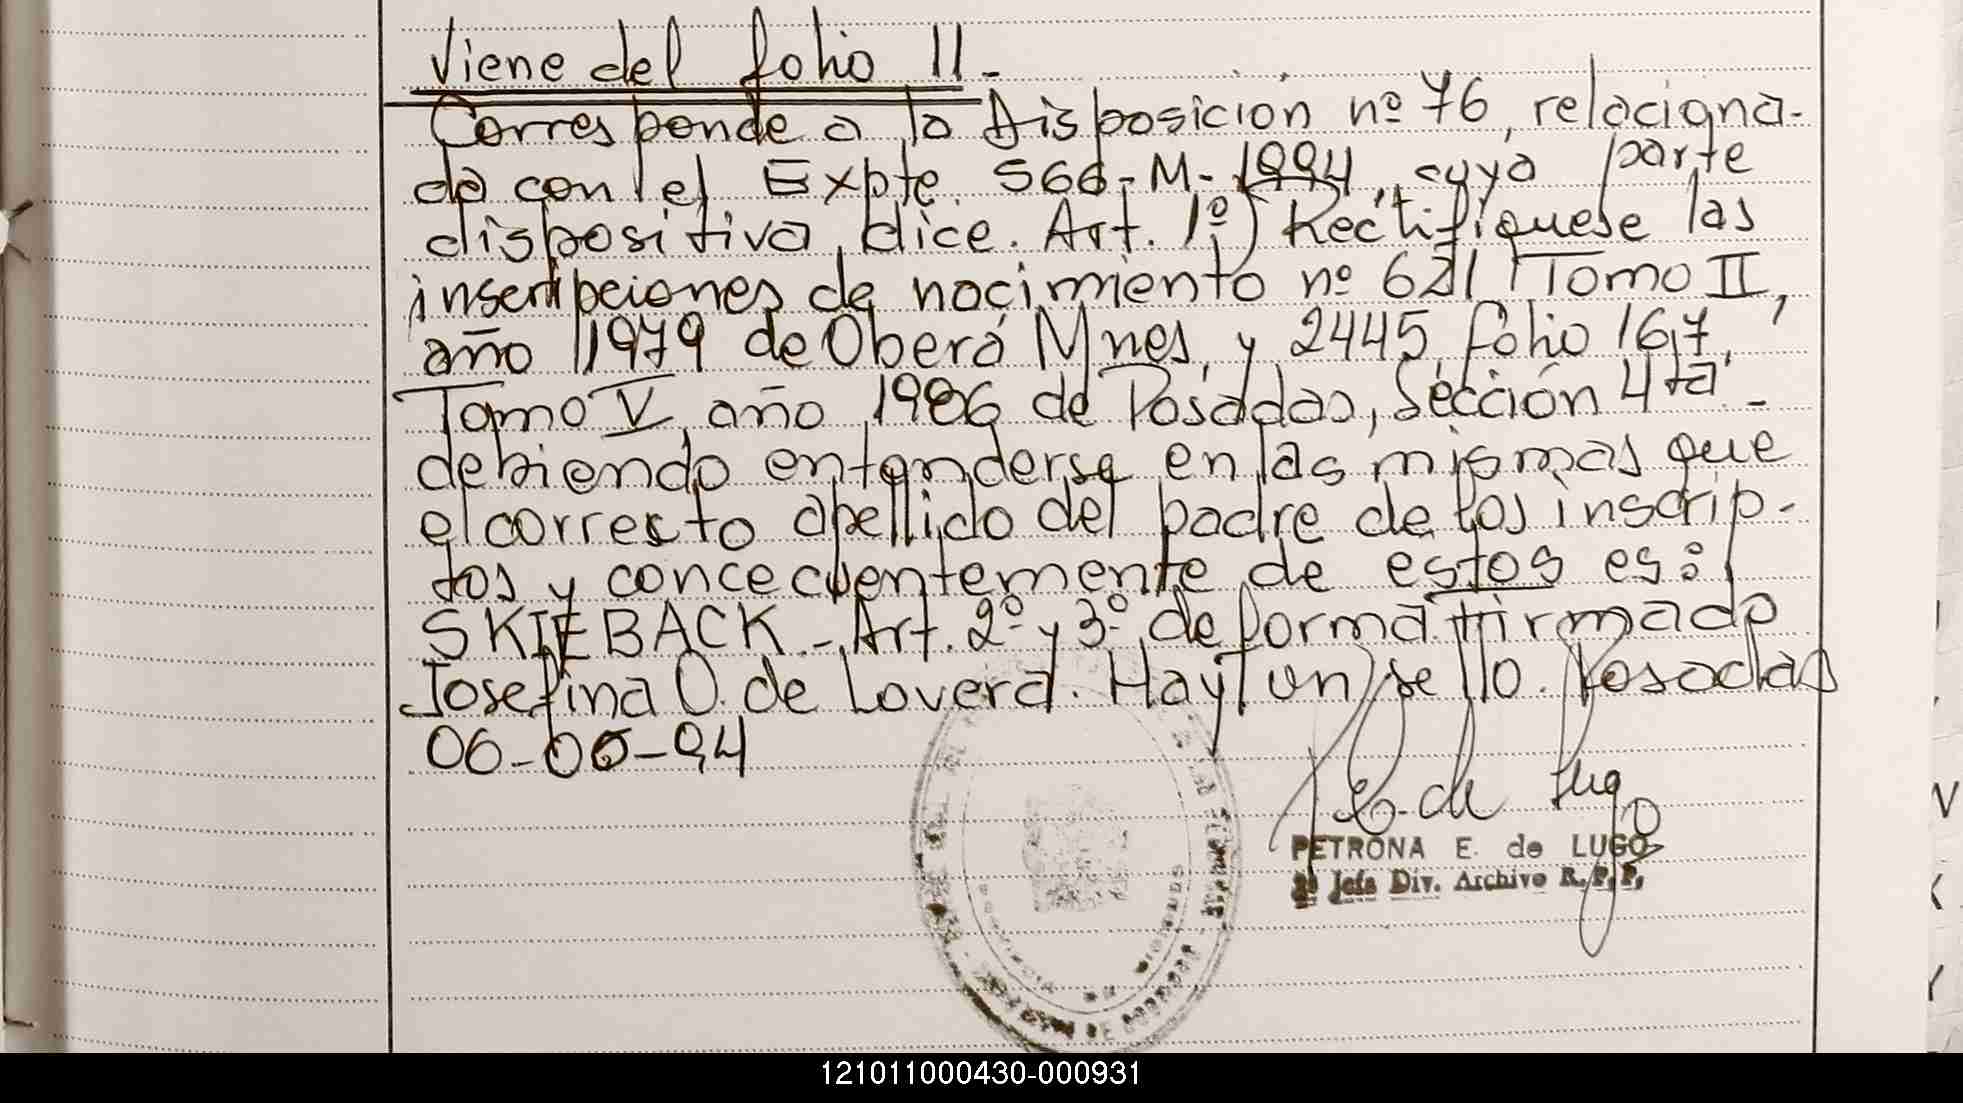 Viene del folio 11.-
Corresponde a la Disposición nº 76, relaciona-
do con el Expte. 566-M-1994, cuya parte
dispositiva, dice. Art. 1º) Rectifíquese las
inscripciones de nacimiento nº 621 Tomo II,
año 1979 de Oberá Mnes, y 2445, folio 167,
Tomo V, año 1986 de Posadas, Sección 4ta.-
debiendo entenderse en las mismas que
el correcto apellido del padre de los inscrip-
tos y concecuentemente de estos es:
SKIEBACK.- Art. 2º y 3º de forma. Firmado
Josefina O. de Lovera. Hay un sello. Posadas
06-06-94
E. de Lugo
PETRONA E. de LUGO
Jefa Div. Archivo R.P.P.
121011000430-000931